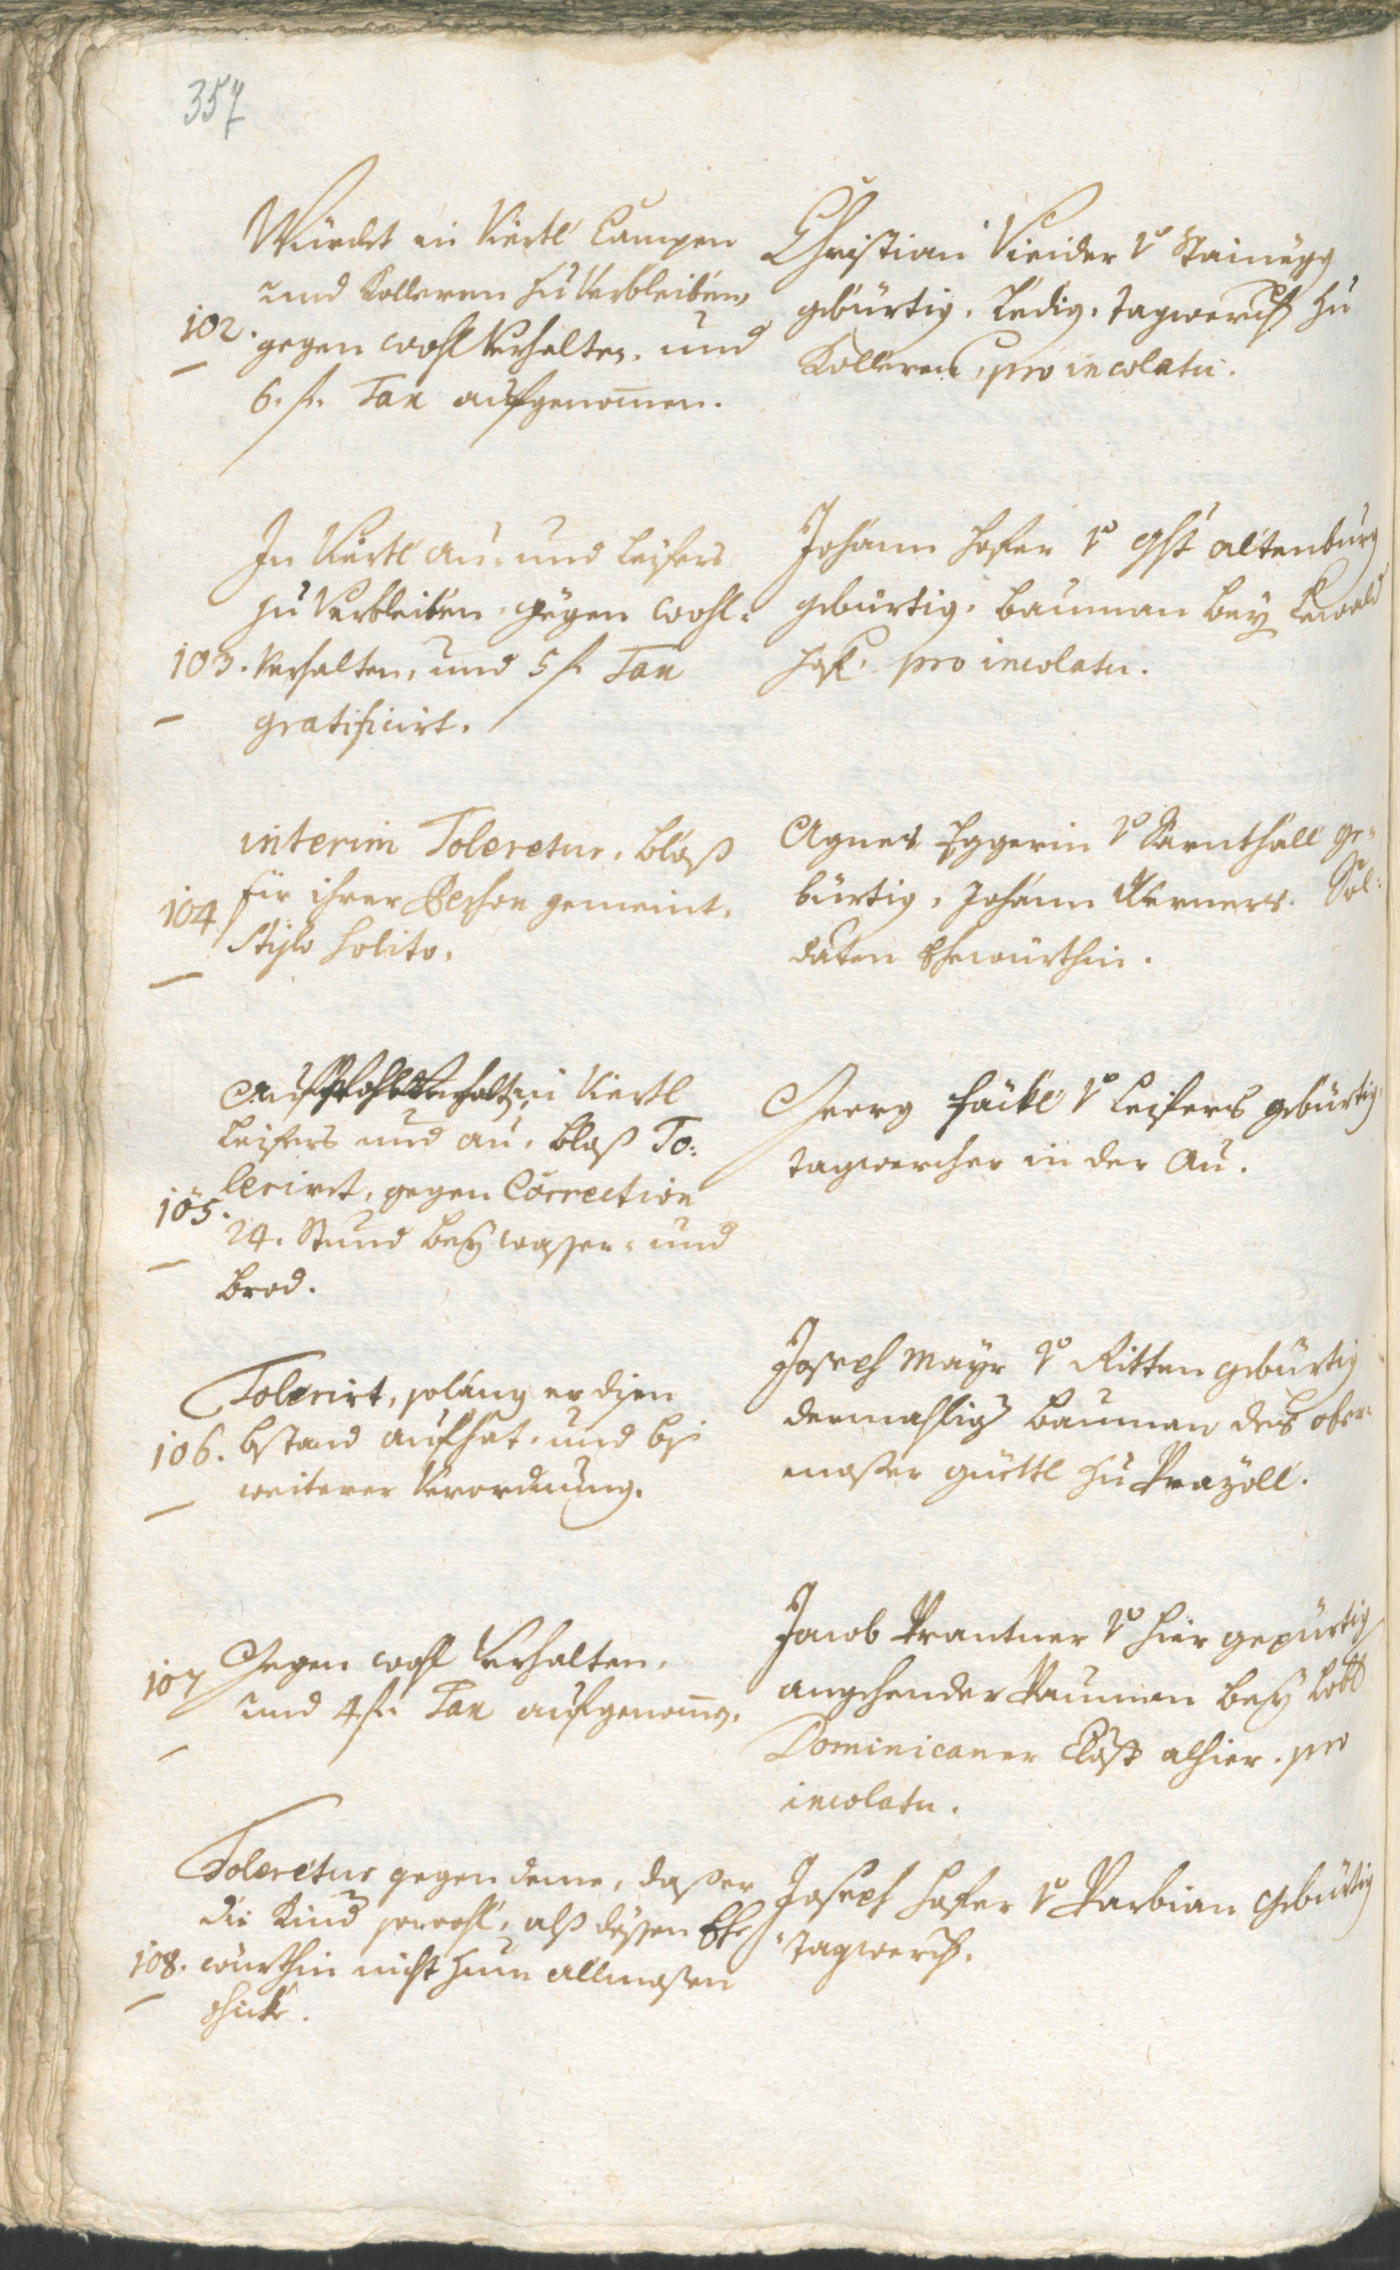 357
Würdet in Viertl Campen
und Kolleren zu Verbleiben,
102. gegen wohl Verhalten. und
6. f. Tax aufgenomen.
Christian Vieider v Stainegg
gebürtig. Ledig. tagwerch zu
Kolleren, pro incolatu.
In Viertl Au- und Leifers
zu Verbleiben. gegen wohl-
103. Verhalten, und 5 f. Tax
gratificirt.
Johann Hofer v Altenburg
gebürtig. bauman bey
pro incolatu.
interim Toleretur. bloß
104 für ihrer Persohn gemeint.
Stylo solito.
Agnes Eggerin v Sarnthall ge-
bürtig. Johann Werners. Sol-
daten Ehewürthin.
in Viertl
Leifers und Au. bloß To-
lerirt, gegen Correction
105.
24. Stund bey wasser- und
Brod.
Georg v Leifers gebürtig.
tagwercher in der Au.
Tolerirt, solang er disen
106. bstand aufhat. und bis
weiterer Verordnung.
Joseph Mayr v Ritten gebürtig
dermahlig bauman des ober-
moßer güettl zu Prazöll.
107 Gegen wohl Verhalten.
und 4 f. Tax aufgenomen.
Jacob Prantner v hier gepürtig
angehender Pauman bey
Dominicaner Closter alhier. pro
incolatu.
Toleretur gegen deme, daß er
die Kind sowohl, alß dessen Ehe-
108. würthin nicht zum allmosen
schicke.
Joseph Hofer v Barbian gebürtig
tagwerch.